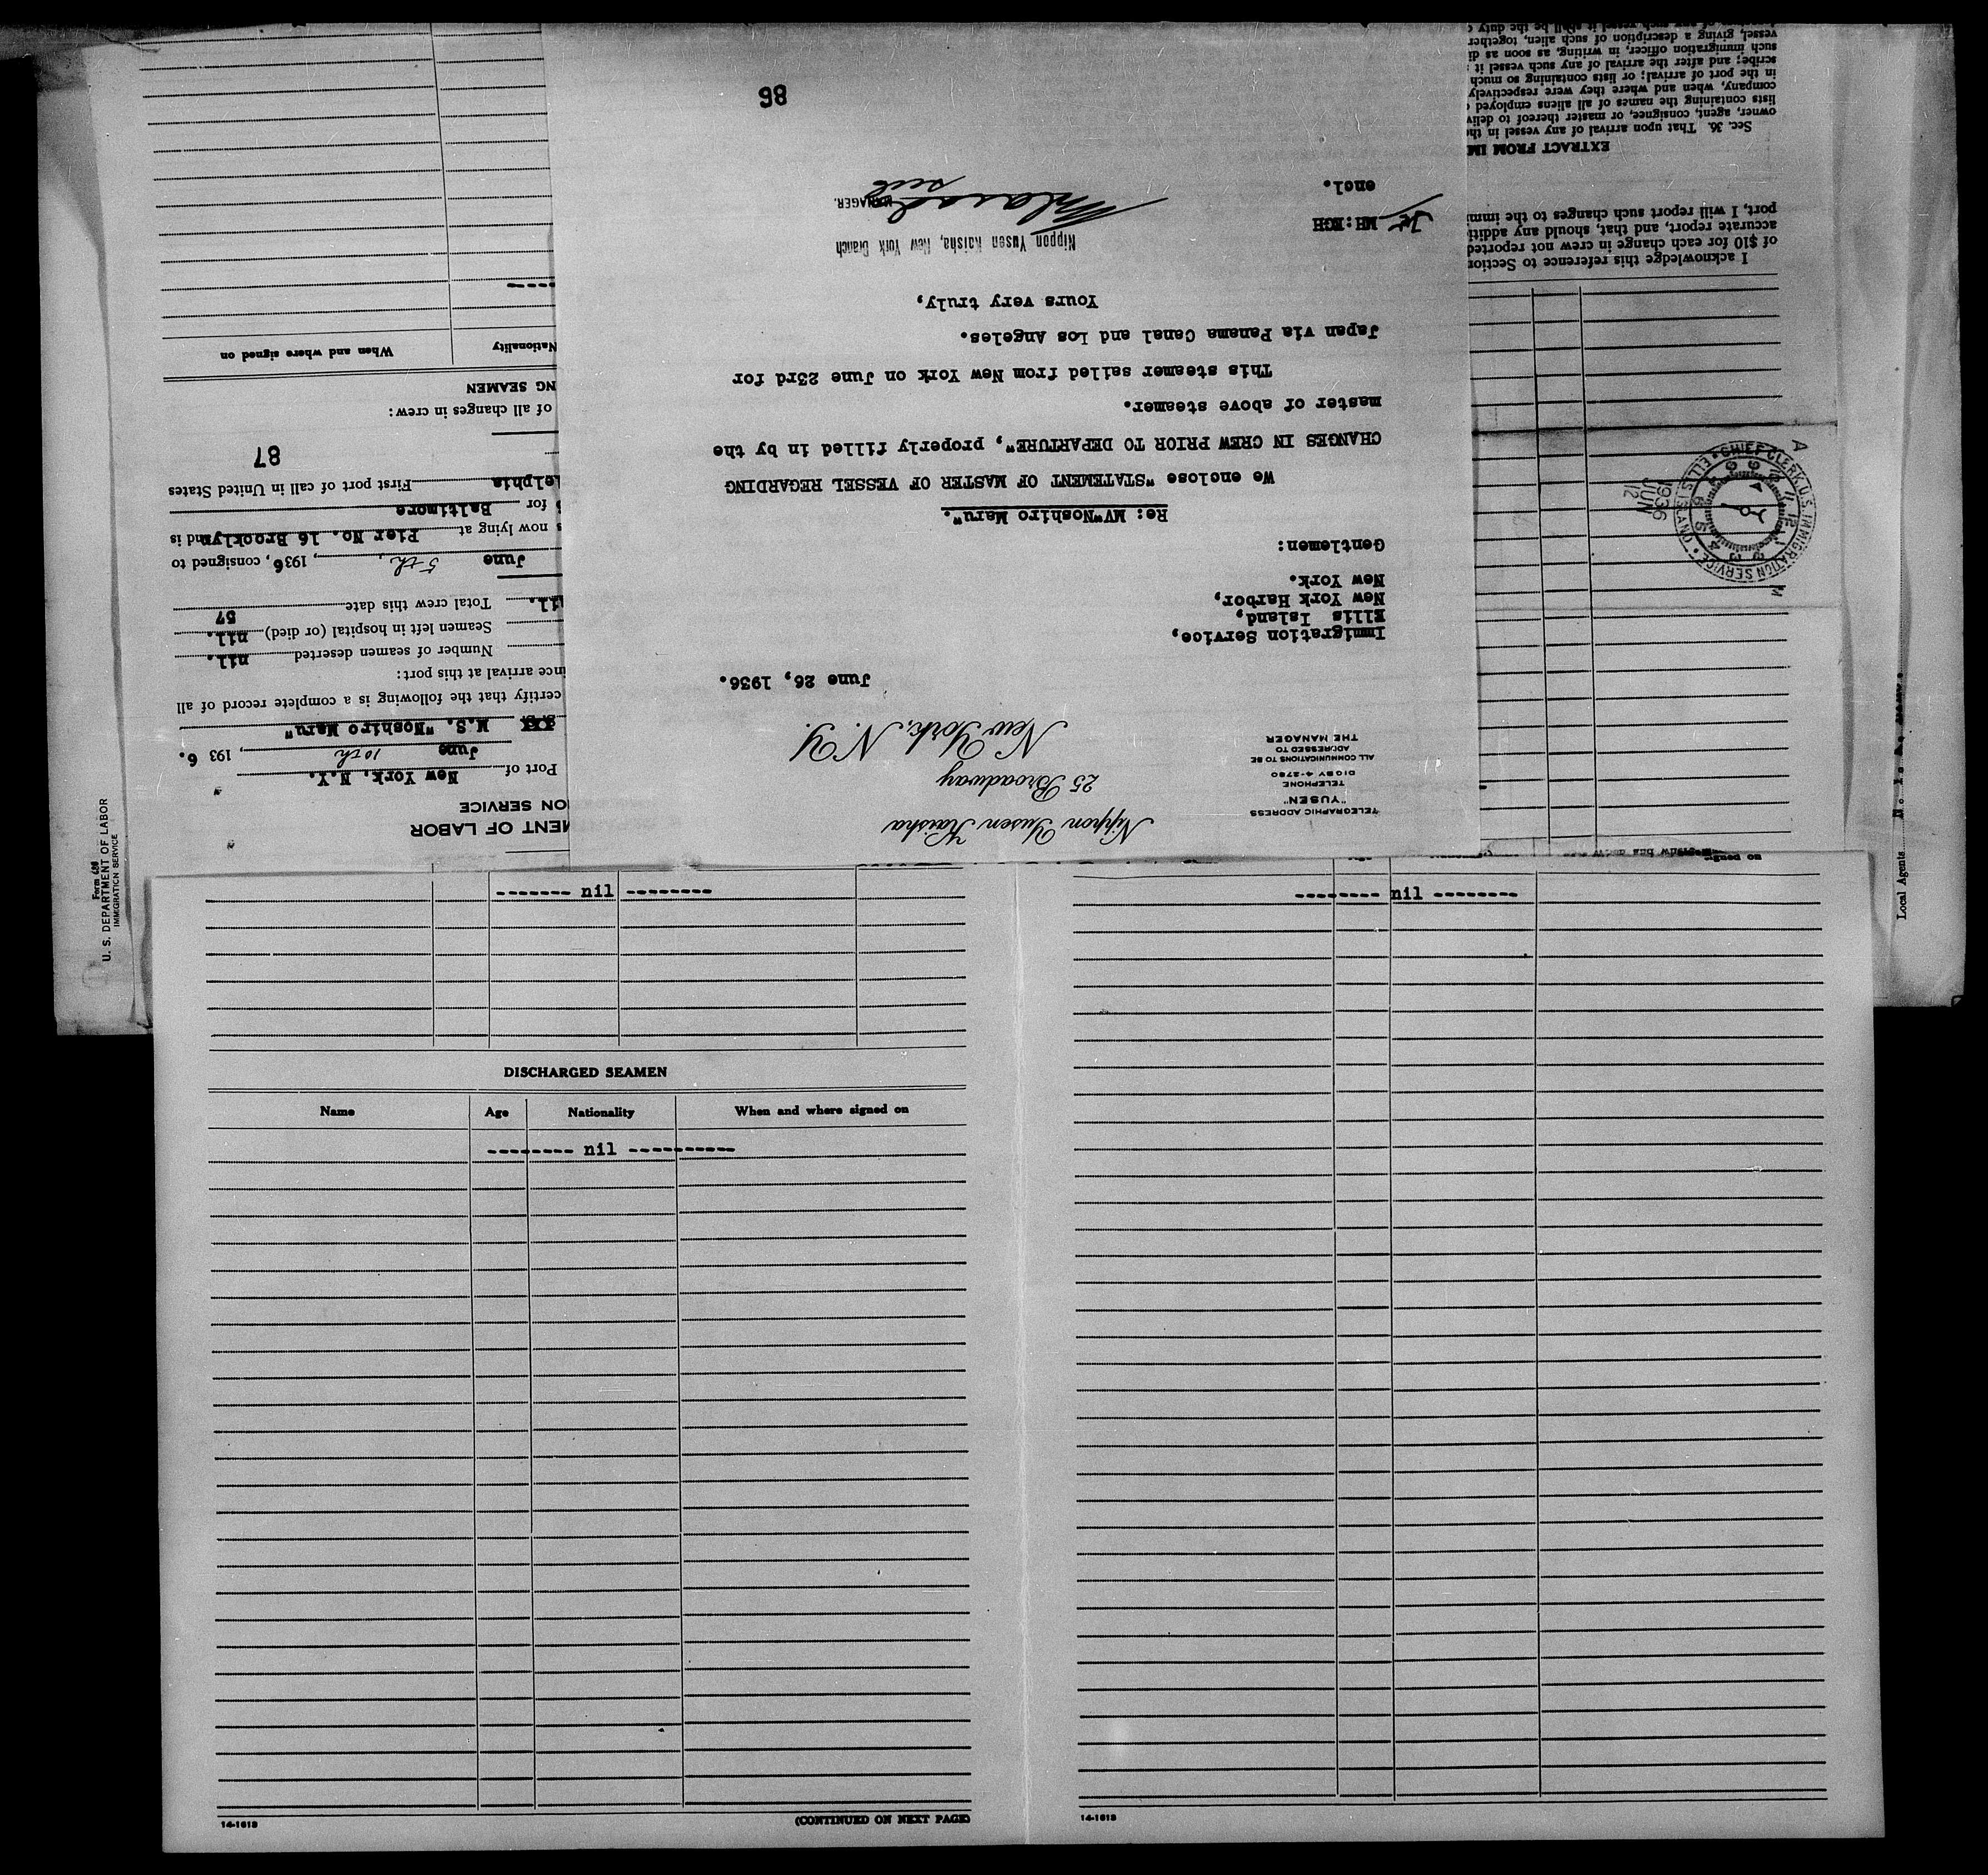 Nippon Yusen Kaisha
25 Broadway
New York, N.Y.
TELEGRAPHIC ADDRESS
"YUSEN"
TELEPHONE
DIGBY 4-2780
ALL COMMUNICATIONS TO BE
ADDRESSED TO
THE MANAGER
June 26, 1936.
Immigration Service,
Ellis Island,
New York Harbor,
New York.
Gentlemen:
Re: MV"Noshiro Maru".
We enclose "STATEMENT OF MASTER OF VESSEL REGARDING
CHANGES IN CREW PRIOR TO DEPARTURE", properly filled in by the
master of above steamer.
This steamer sailed from New York on June 23rd for
Japan via Panama Canal and Los Angeles.
Yours very truly,
Nippon Yusen Kaisha, New York Branch
MANAGER.
MH:EGH
encl.
86
MENT OF LABOR
ON SERVICE
Port of New York, N.Y.
June 10th, 1936.
M.S. "Noshiro Maru"
certify that the following is a complete record of all
ince arrival at this port:
Number of seamen deserted nil.
Seamen left in hospital (or died) nil.
Total crew this date 57
June 5th, 1936, consigned to
s now lying at Pier No. 16 Brooklyn and is
for Baltimore
elphia First port of call in United States
87
of all changes in crew:
NG SEAMEN
Nationality When and where signed on
I acknowledge this reference to Section
of $10 for each change in crew not reported
accurate report, and that, should any additi
port, I will report such changes to the immi
EXTRACT FROM IM
Sec. 36. That upon arrival of any vessel in the
owner, agent, consignee, or master thereof to deliv
lists containing the names of all aliens employed
company, when and where they were respectively
in the port of arrival; or lists containing so much
scribe; and after the arrival of any such vessel it
such immigration officer, in writing, as soon as di
vessel, giving a description of such alien, together
CHIEF CLERK U.S. IMMIGRATION SERVICE ELLIS ISLAND
JUN 12 1936
Form 689
U. S. DEPARTMENT OF LABOR
IMMIGRATION SERVICE
Local Agents
------- nil --------
DISCHARGED SEAMEN
Name Age Nationality When and where signed on
-------- nil ----------
14-1613 (CONTINUED ON NEXT PAGE)
-------- nil --------
14-1613